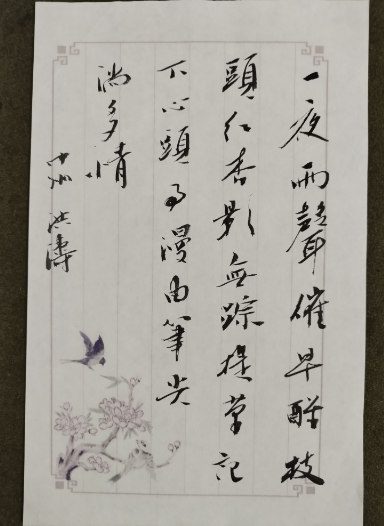 一夜雨聲催早醒枝
頭红杏影無踪提筆記
下心頭事漫由筆尖
淌多情
洪濤